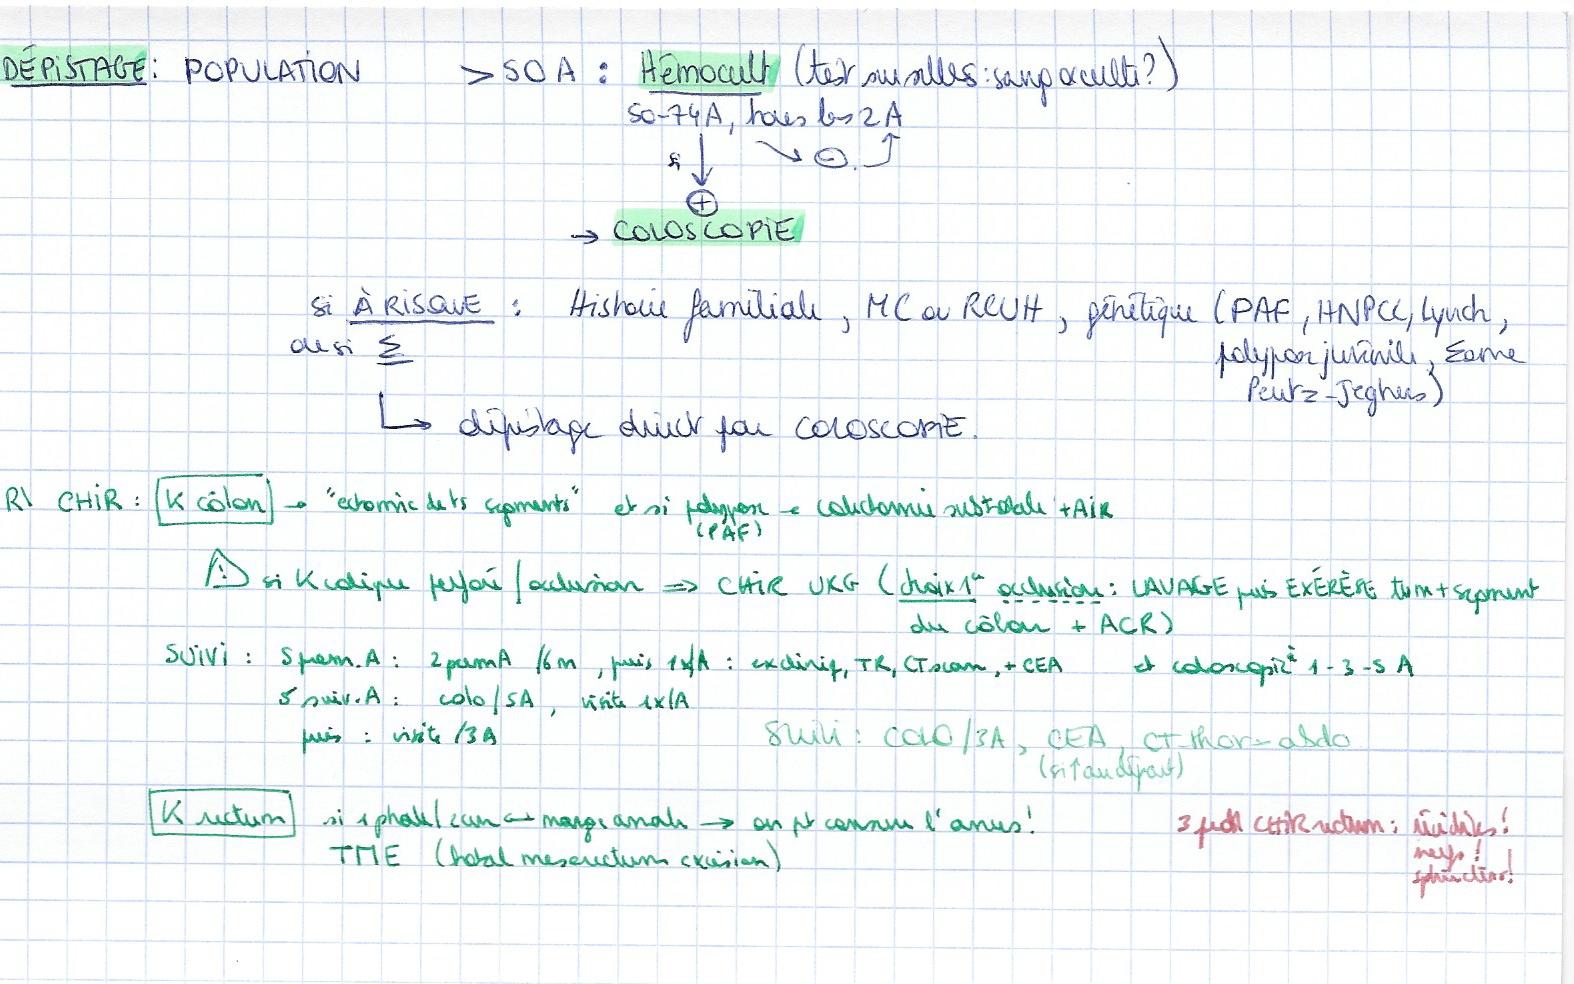 DÉPISTAGE : POPULATION > 50 A : Hémocult (test su selles : sang occulte ?)
50-74A, tous les 2 A
si ↓ ↘ ⊖ ⤴
⊕
→ COLOSCOPIE
si À RISQUE : Histoire familiale, MC ou RCUH, génétique (PAF, HNPCC, Lynch,
ou si Σ polypose juvénile, Σome
Peutz-Jeghers)
↳ dépistage direct par COLOSCOPIE.
R\ CHIR : K côlon → "ectomie de ts segments" et si polypose → colectomie subtotale + AIR
(PAF)
⚠ si K colique perforé / occlusion ⇒ CHIR URG (choix 1er occlusion : LAVAGE puis EXÉRÈSE tum + segment
du côlon + ACR)
SUIVI : 5 prem. A : 2 prem A /6 m, puis 1x/A : ex cliniq, TR, CT scan, + CEA et coloscopie à 1-3-5 A
5 suiv. A : colo / 5A, visite 1x/A
puis : visite /3A Suivi : COLO /3A, CEA, CT-thor-abdo
(si ↑ au départ)
K rectum si 1 phal / cm ↔ marge anale → on pt conserver l'anus !
TME (total mesorectum excision)
3 CHIR rectum : récidives !
nerfs !
sphincters !